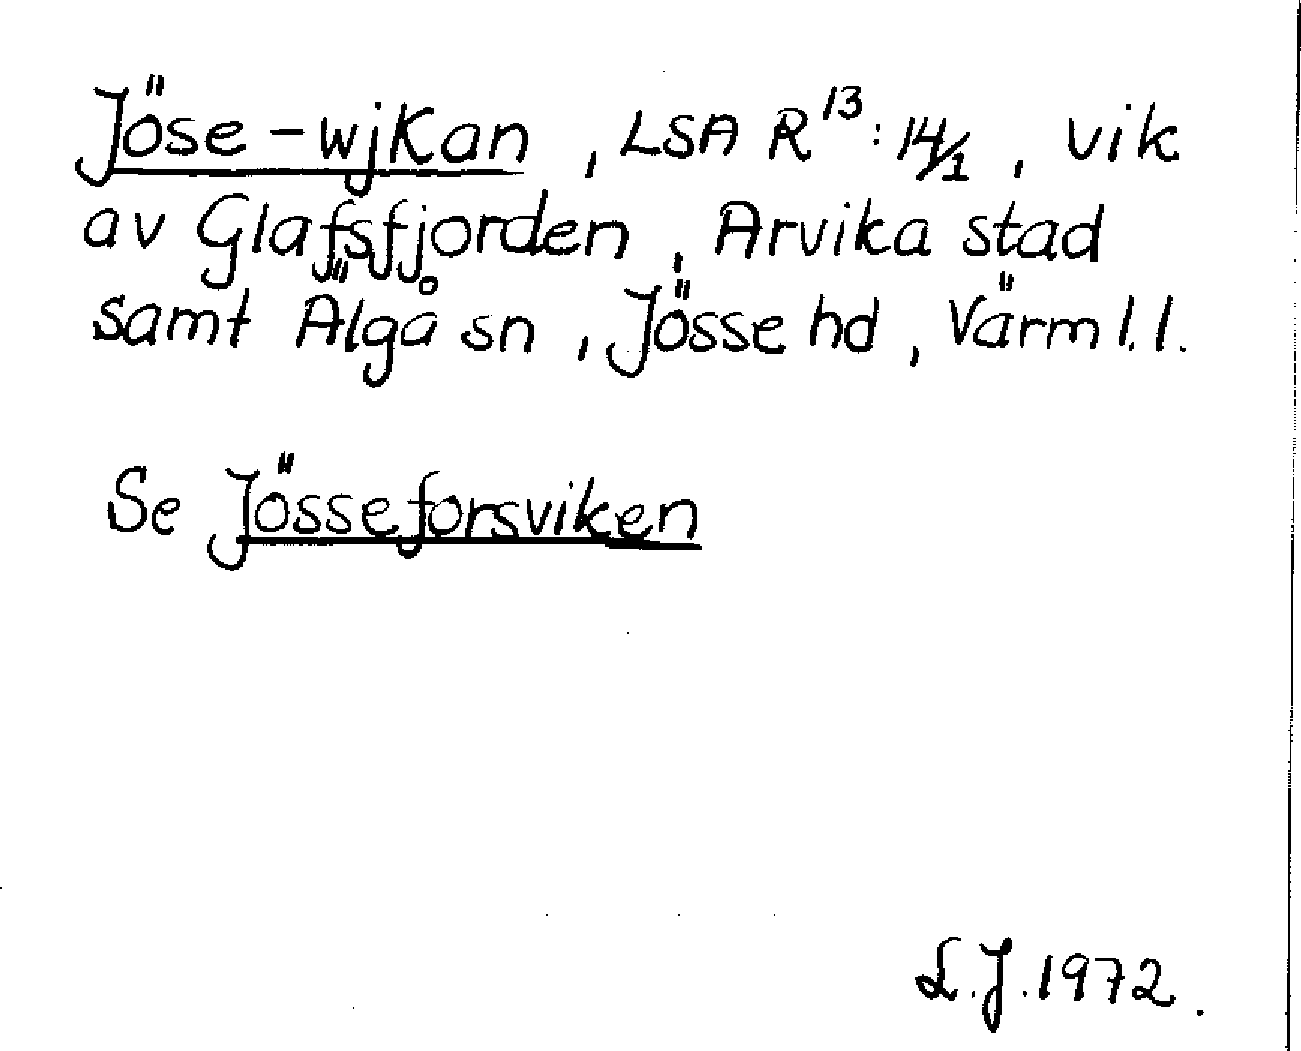 Jöse-wjKan, LSA R¹³: 14/1, vik
av Glafsfjorden, Arvika stad
samt Älgå sn, Jösse hd, Värml.l.
Se Jösseforsviken
L.J. 1972.